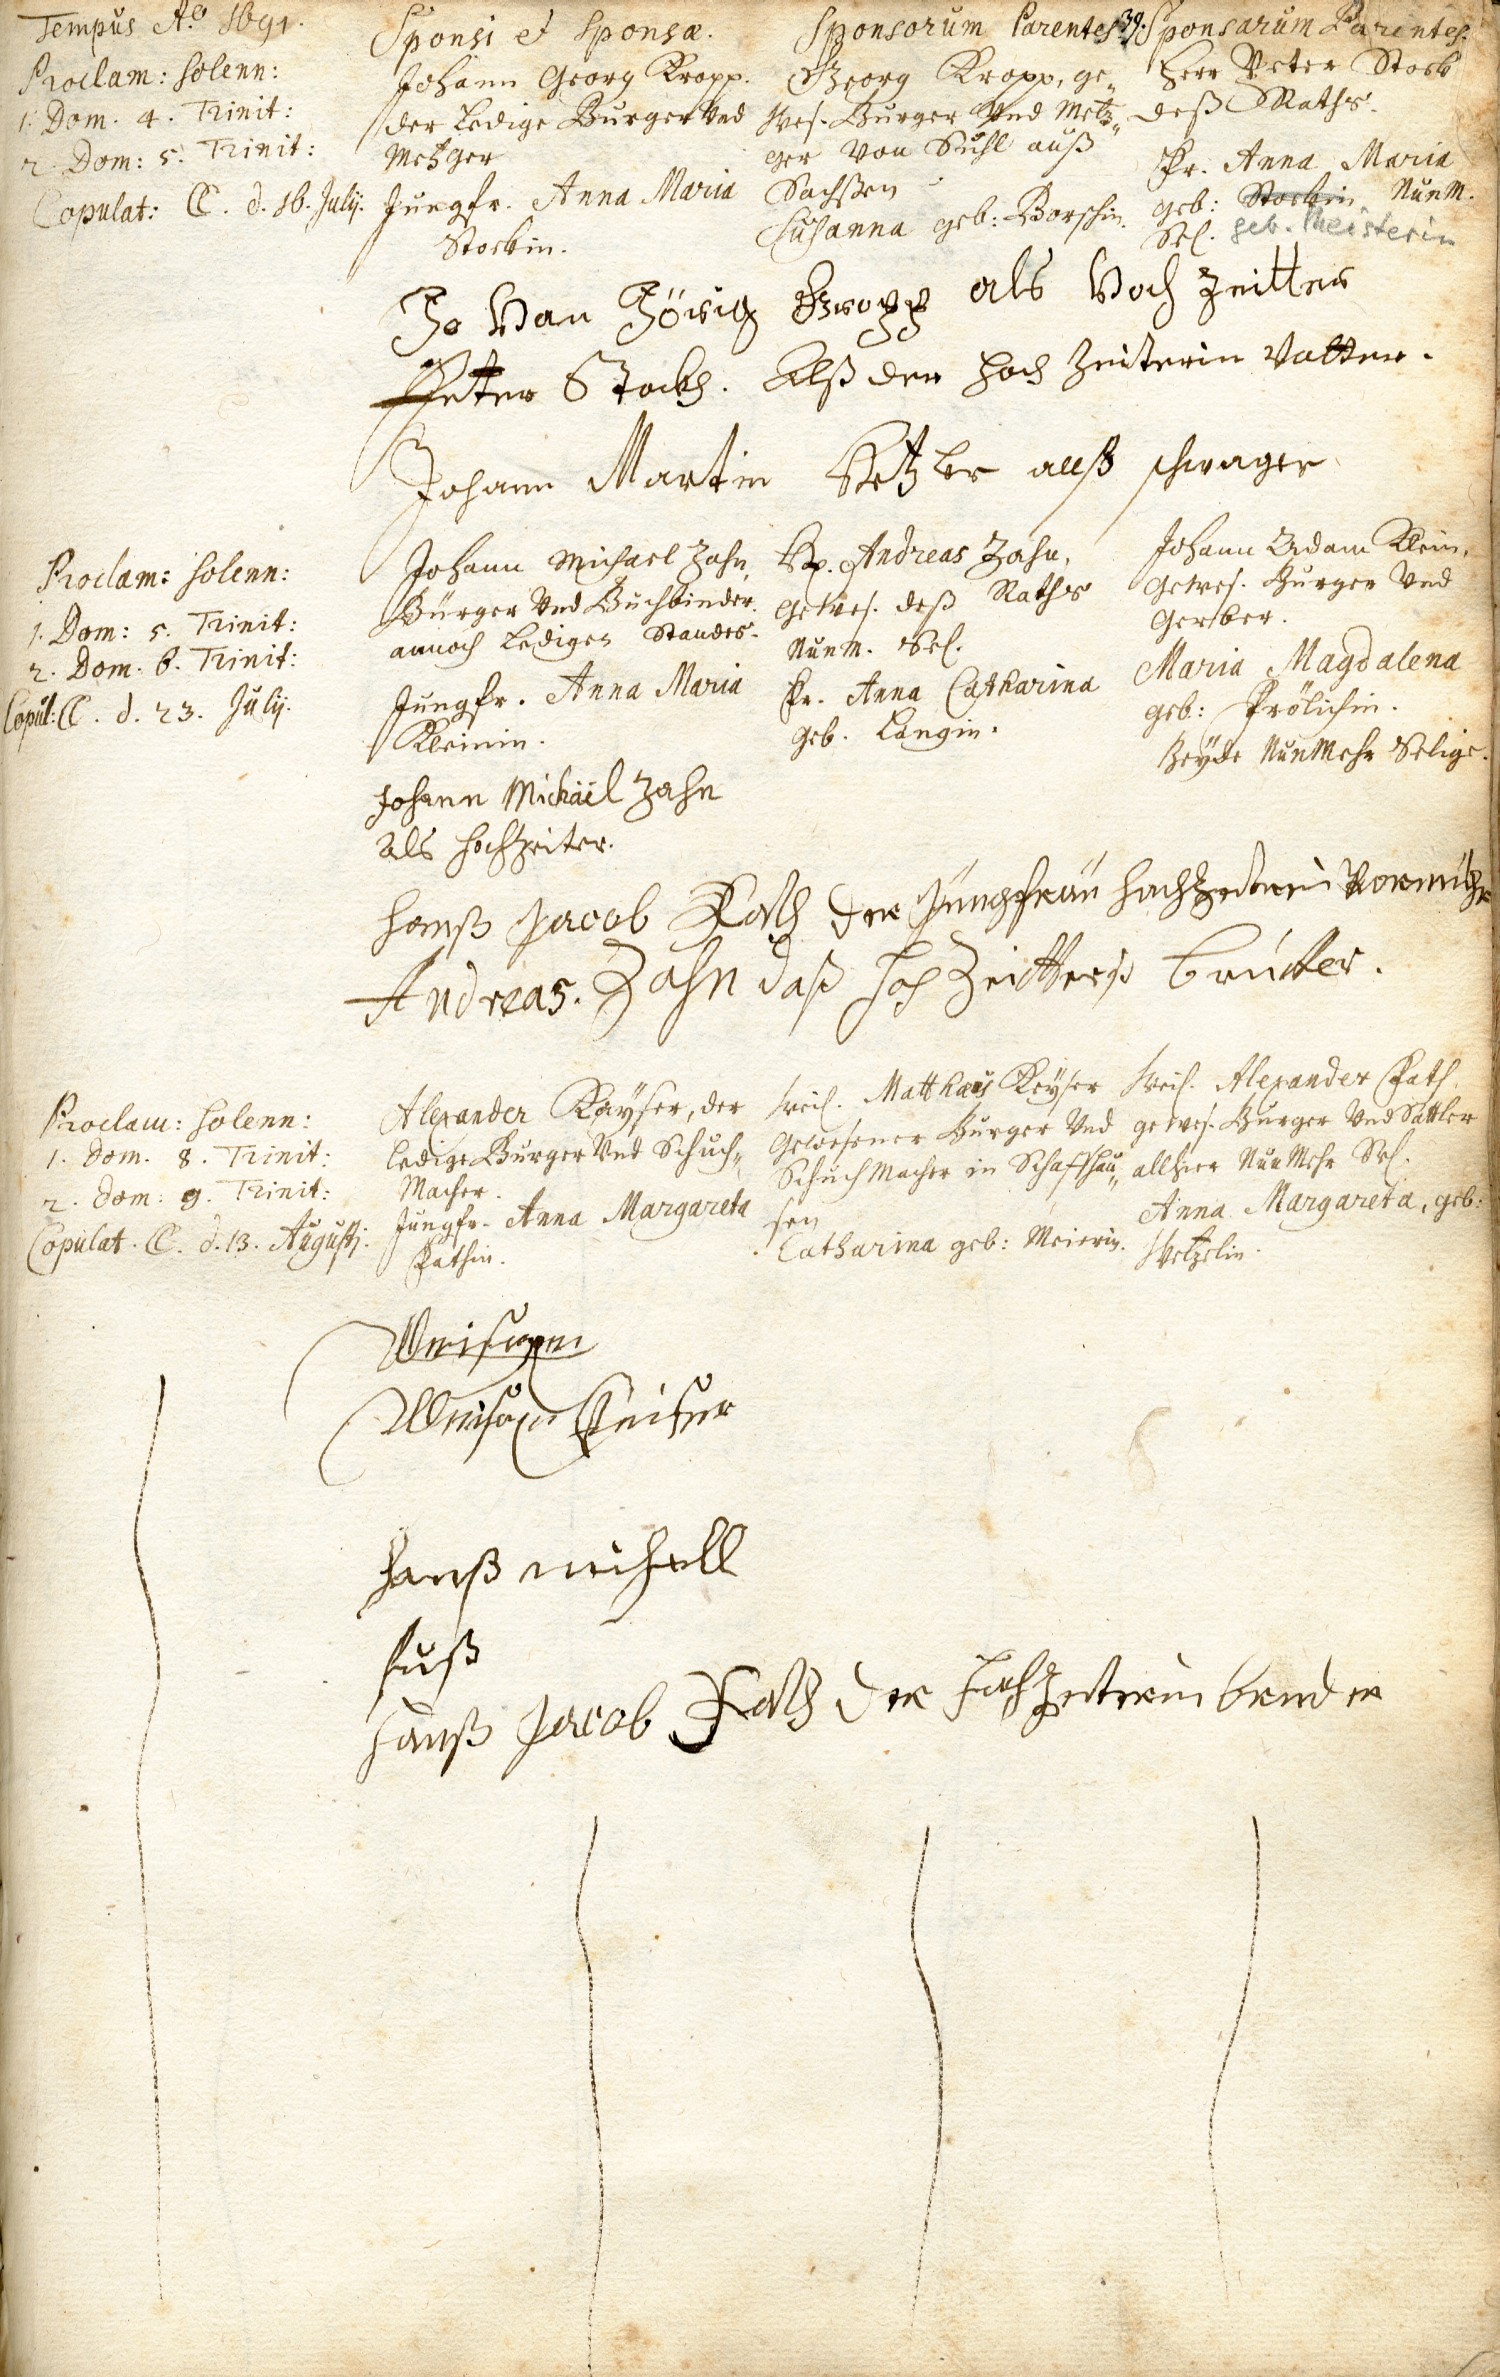 Tempus Aº 1691.
Proclam: solenn:
1. Dom. 4. Trinit:
2. Dom: 5. Trinit:
Copulat: C. d. 16. July.
Sponsi et Sponsæ.
Johann Georg Kropp.
der ledige Burger Vnd
Metzger
Jungfr. Anna Maria
Stockin.
Sponsorum Parentes
39.
Georg Kropp, ge„
wes. Burger Vnd Metz„
ger von Suhl auß
Sachßen
Susanna geb: Borschin.
Sponsarum Parentes.
Herr Peter Stock
deß Raths.
Fr. Anna Maria
geb: Stockin NunM.
Sel. geb. Meisterin
Jo Han Jörig Gropp als Hoch Zeitter
Petter Stockh. Alß der Hoch Zeiterin Vatter.
Johann Martin Setzler alß schwager
Proclam: solenn:
1. Dom: 5. Trinit:
2. Dom. 6. Trinit:
Copul: C. d. 23. July.
Johann Michael Zahn,
Bürger Vnd Buchbinder.
annoch ledigen Standes.
Jungfr. Anna Maria
Kleinin.
Hr. Andreas Zahn,
Gewes. deß Raths
NunM. Sel.
Fr. Anna Catharina
geb. Langin.
Johann Adam Klein,
Gewes. Burger Vnd
Gerber.
Maria Magdalena
geb: Frölichin.
Beyde NunMehr Selige.
Johann Michaël Zahn
als hochzeiter.
Hanß Jacob Fath der Jungfrau hochzeiterin Vormünder
Andreas. Zahn daß Hoch Zeitterß bruter.
Proclam: solenn:
1. Dom. 8. Trinit:
2. Dom: 9. Trinit:
Copulat. C. d. 13. Augusti.
Alexander Kayser, der
ledige Burger Vnd Schuch„
Macher.
Jungfr. Anna Margareta
Fathin.
Weil. Matthæus Keyser
Gewesener Burger Vnd
Schuch Macher in Schaffhau„
sen
Catharina geb: Meierin.
Weil. Alexander Fath
gewes. Burger Vnd Sattler
allhier NunMehr Sel.
Anna Margareta, geb:
Wetzelin.
Keiser
Hanß michell
fuß
Hanß Jacob Fath der hochzeiterin bruder